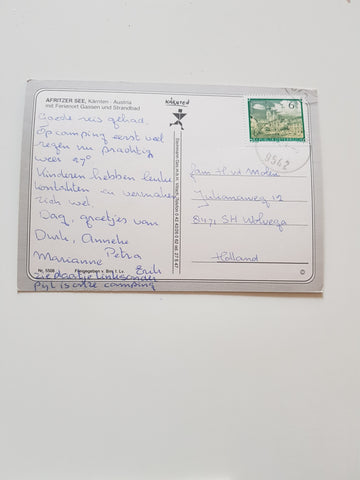 AFRITZER SEE, Kärnten · Austria
mit Ferienort Gassen und Strandbad
KÄRNTEN
Goede reis gehad.
Op camping eerst veel
regen nu prachtig
weer 27°
Kinderen hebben leuke
kontakten en vermaken
zich wel.
Dag, groetjes van
Durk, Anneke
Marianne Petra
Erik
zie plaatje linksonder
pijl is onze camping
Nr. 5508
6
REPUBLIK ÖSTERREICH
9542
fam H vd Molen
Julianaweg 12
8471 SH Wolvega
Holland